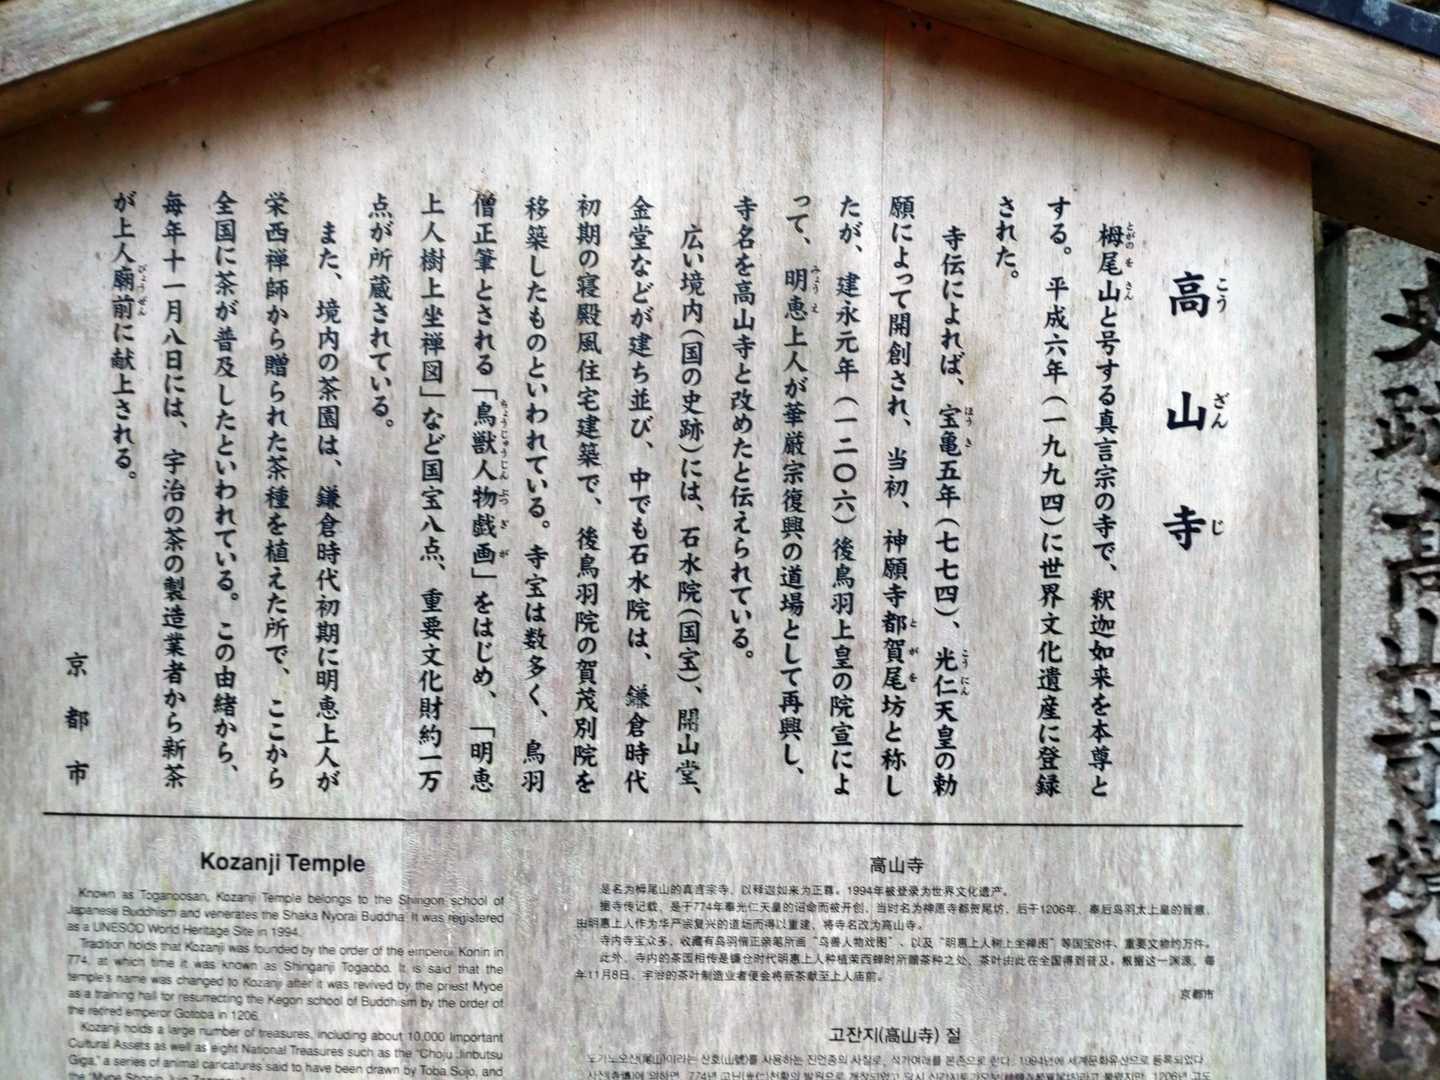 高山寺
こう ざん じ
栂尾山と号する真言宗の寺で、釈迦如来を本尊と
とがのをさん
する。平成六年(一九九四)に世界文化遺産に登録
された。
寺伝によれば、宝亀五年(七七四)、光仁天皇の勅
ほうき こうにん
願によって開創され、当初、神願寺都賀尾坊と称し
とがを
たが、建永元年(一二〇六)後鳥羽上皇の院宣によ
って、明恵上人が華厳宗復興の道場として再興し、
みょうえ
寺名を高山寺と改めたと伝えられている。
広い境内(国の史跡)には、石水院(国宝)、開山堂、
金堂などが建ち並び、中でも石水院は、鎌倉時代
初期の寝殿風住宅建築で、後鳥羽院の賀茂別院を
移築したものといわれている。寺宝は数多く、鳥羽
僧正筆とされる「鳥獣人物戯画」をはじめ、「明恵
ちょうじゅうじんぶつぎが
上人樹上坐禅図」など国宝八点、重要文化財約一万
点が所蔵されている。
また、境内の茶園は、鎌倉時代初期に明恵上人が
栄西禅師から贈られた茶種を植えた所で、ここから
全国に茶が普及したといわれている。この由緒から、
毎年十一月八日には、宇治の茶の製造業者から新茶
が上人廟前に献上される。
びょうぜん
京都市
Kozanji Temple
Known as Toganoosan, Kozanji Temple belongs to the Shingon school of
Japanese Buddhism and venerates the Shaka Nyorai Buddha. It was registered
as a UNESCO World Heritage Site in 1994.
Tradition holds that Kozanji was founded by the order of the emperor Konin in
774, at which time it was known as Shinganji Togaobo. It is said that the
temple's name was changed to Kozanji after it was revived by the priest Myoe
as a training hall for resurrecting the Kegon school of Buddhism by the order of
the retired emperor Gotoba in 1206.
Kozanji holds a large number of treasures, including about 10,000 Important
Cultural Assets as well as eight National Treasures such as the "Choju Jinbutsu
Giga," a series of animal caricatures said to have been drawn by Toba Sojo, and
高山寺
是名为栂尾山的真言宗寺，以释迦如来为正尊。1994年被登录为世界文化遗产。
据寺传记载，是于774年奉光仁天皇的诏命而被开创，当时名为神愿寺都贺尾坊，后于1206年，奉后鸟羽太上皇的旨意，
由明惠上人作为华严宗复兴的道场而得以重建，将寺名改为高山寺。
寺内寺宝众多，收藏有鸟羽僧正亲笔所画"鸟兽人物戏图"、以及"明惠上人树上坐禅图"等国宝8件、重要文物约万件。
此外，寺内的茶园相传是镰仓时代明惠上人种植荣西禅师所赠茶种之处，茶叶由此在全国得到普及。根据这一渊源，每
年11月8日，宇治的茶叶制造业者便会将新茶献至上人庙前。
京都市
고잔지(高山寺) 절
史跡高山寺境内